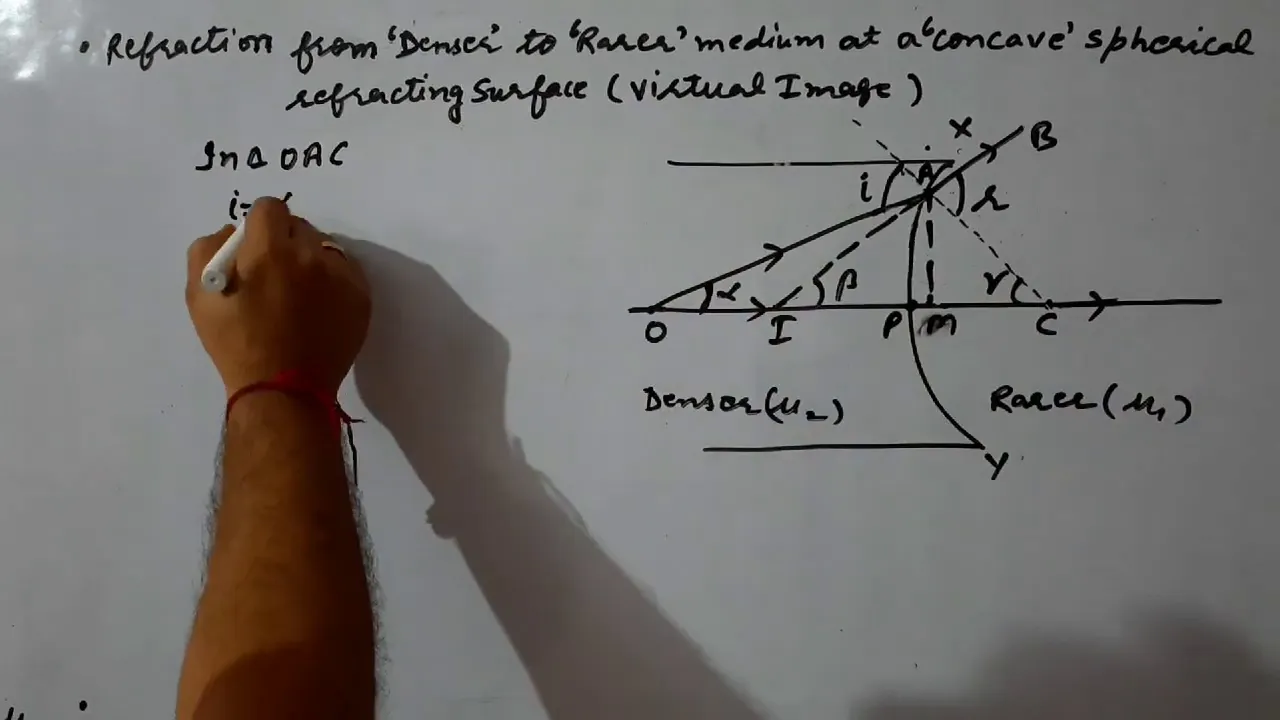 • Refraction from 'Denser' to 'Rarer' medium at a 'concave' spherical
refracting Surface (Virtual Image)
In Δ OAC
i=
X
B
A
i
r
α
β
γ
O
I
P
M
C
Densor (μ₂)
Rarer (μ₁)
Y